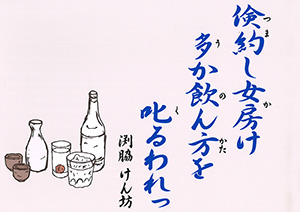 倹約し女房け
多か飲ん方を
叱るわれっ
渕脇 けん坊
つま か
う の かた
く